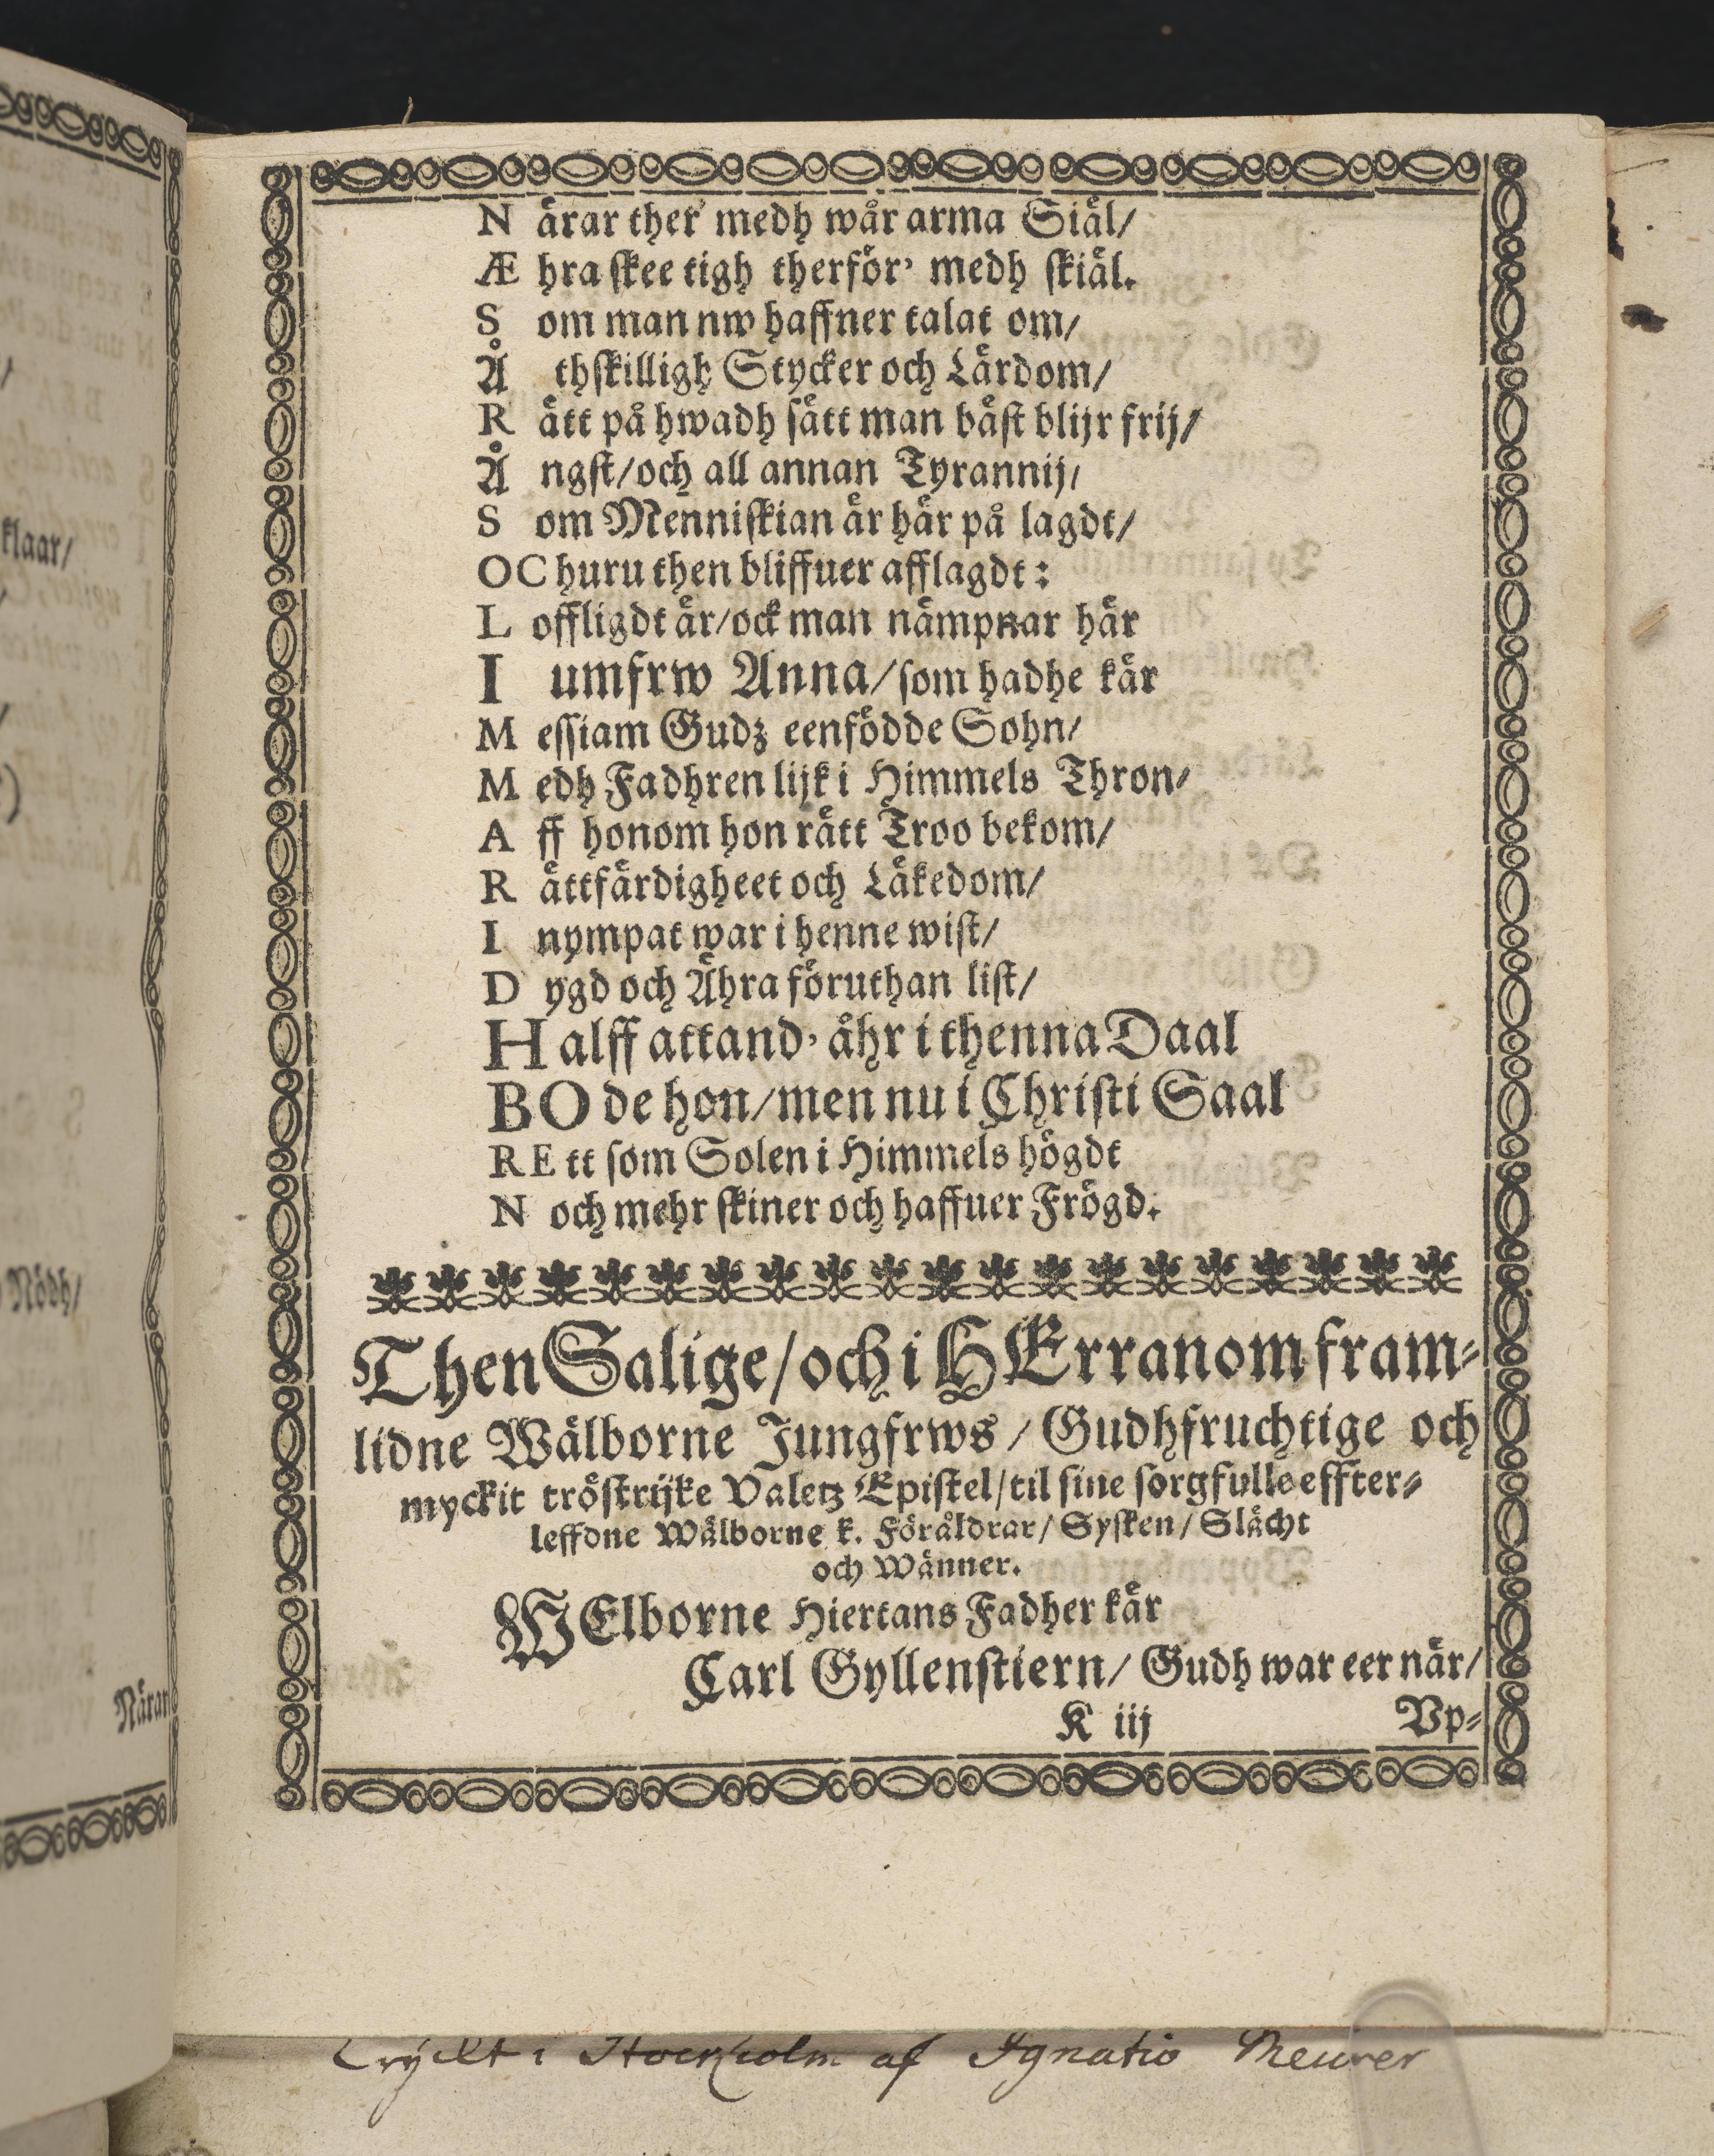 N ärar ther medh wår arma Siäl/
Æ hra skee tigh therför' medh skiäl.
S om man nw haffner talat om/
Å thskilligh Stycker och Lärdom/
R ätt på hwadh sätt man bäst blijr frij/
Å ngst/och all annan Tyrannij/
S om Menniskian är här på lagdt/
OC huru then bliffuer afflagdt:
L offligdt är/ock man nämpnar här
I umfrw Anna/som hadhe kär
M essiam Gudz eenfödde Sohn/
M edh Fadhren lijk i Himmels Thron/
A ff honom hon rätt Troo bekom/
R ättfärdigheet och Läkedom/
I nympat war i henne wist/
D ygd och Ähra föruthan list/
H alff attand' åhr i thenna Daal
BO de hon/men nu i Christi Saal
RE tt som Solen i Himmels högdt
N och mehr skiner och haffuer Frögd.
Then Salige/och i HErranom fram-
lidne Wälborne Jungfrws/Gudhfruchtige och
myckit tröstrijke Valetz Epistel/til sine sorgfulle effter-
leffdne Wälborne k. Föräldrar/Sysken/Slächt
och Wänner.
WElborne Hiertans Fadher kär
Carl Gyllenstiern/Gudh war eer när/
K iij Vp-
klaar/
Nödh/
Näran
Tryckt i Stockholm af Ignatio Meurer